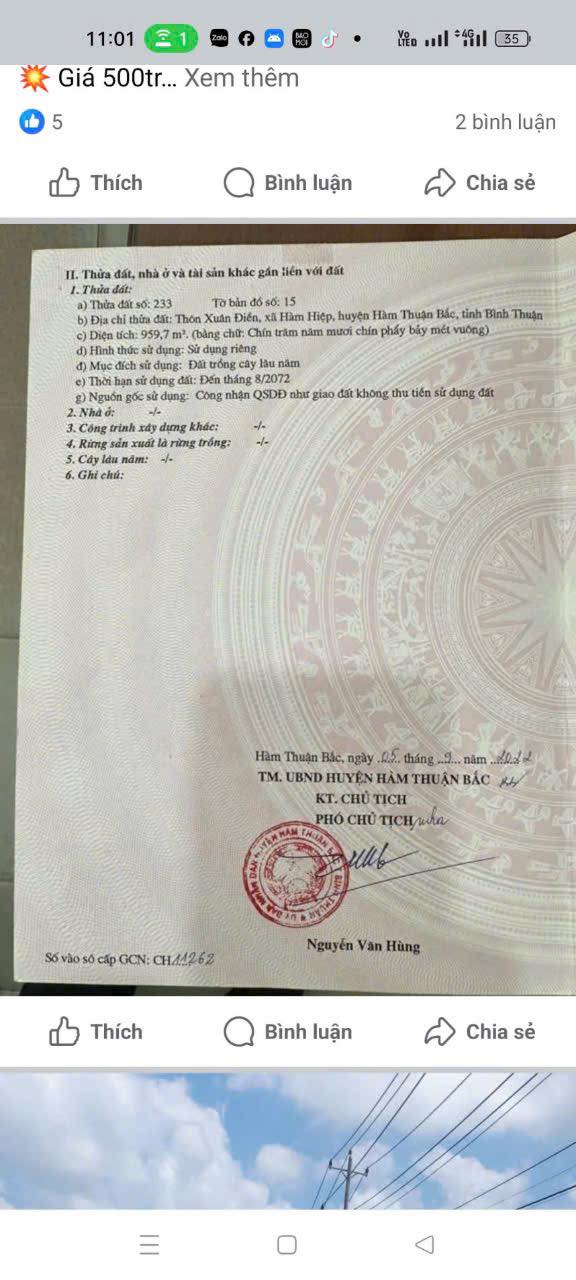 11:01 1 Zalo BÁO MỚI Vo LTED 4G 35
Giá 500tr... Xem thêm
5 2 bình luận
Thích Bình luận Chia sẻ
II. Thửa đất, nhà ở và tài sản khác gắn liền với đất
1. Thửa đất:
a) Thửa đất số: 233 Tờ bản đồ số: 15
b) Địa chỉ thửa đất: Thôn Xuân Điền, xã Hàm Hiệp, huyện Hàm Thuận Bắc, tỉnh Bình Thuận
c) Diện tích: 959,7 m². (bằng chữ: Chín trăm năm mươi chín phẩy bảy mét vuông)
d) Hình thức sử dụng: Sử dụng riêng
đ) Mục đích sử dụng: Đất trồng cây lâu năm
e) Thời hạn sử dụng đất: Đến tháng 8/2072
g) Nguồn gốc sử dụng: Công nhận QSDĐ như giao đất không thu tiền sử dụng đất
2. Nhà ở: -/-
3. Công trình xây dựng khác: -/-
4. Rừng sản xuất là rừng trồng: -/-
5. Cây lâu năm: -/-
6. Ghi chú:
Hàm Thuận Bắc, ngày ..05.. tháng ..9... năm ..2022
TM. UBND HUYỆN HÀM THUẬN BẮC
KT. CHỦ TỊCH
PHÓ CHỦ TỊCH
Nguyễn Văn Hùng
Số vào sổ cấp GCN: CH.11262
Thích Bình luận Chia sẻ